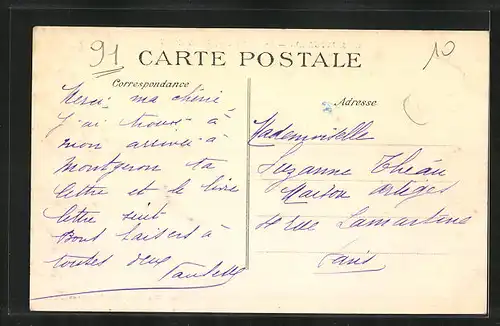 91
10
CARTE POSTALE
Correspondance
Adresse
Merci ma chérie
J'ai trouvé à
mon arrivée à
Montgeron ta
lettre et le livre
lettre suit
Bons baisers à
toutes deux
Mademoiselle
Suzanne Théau
Maison
rue Lamartine
Paris